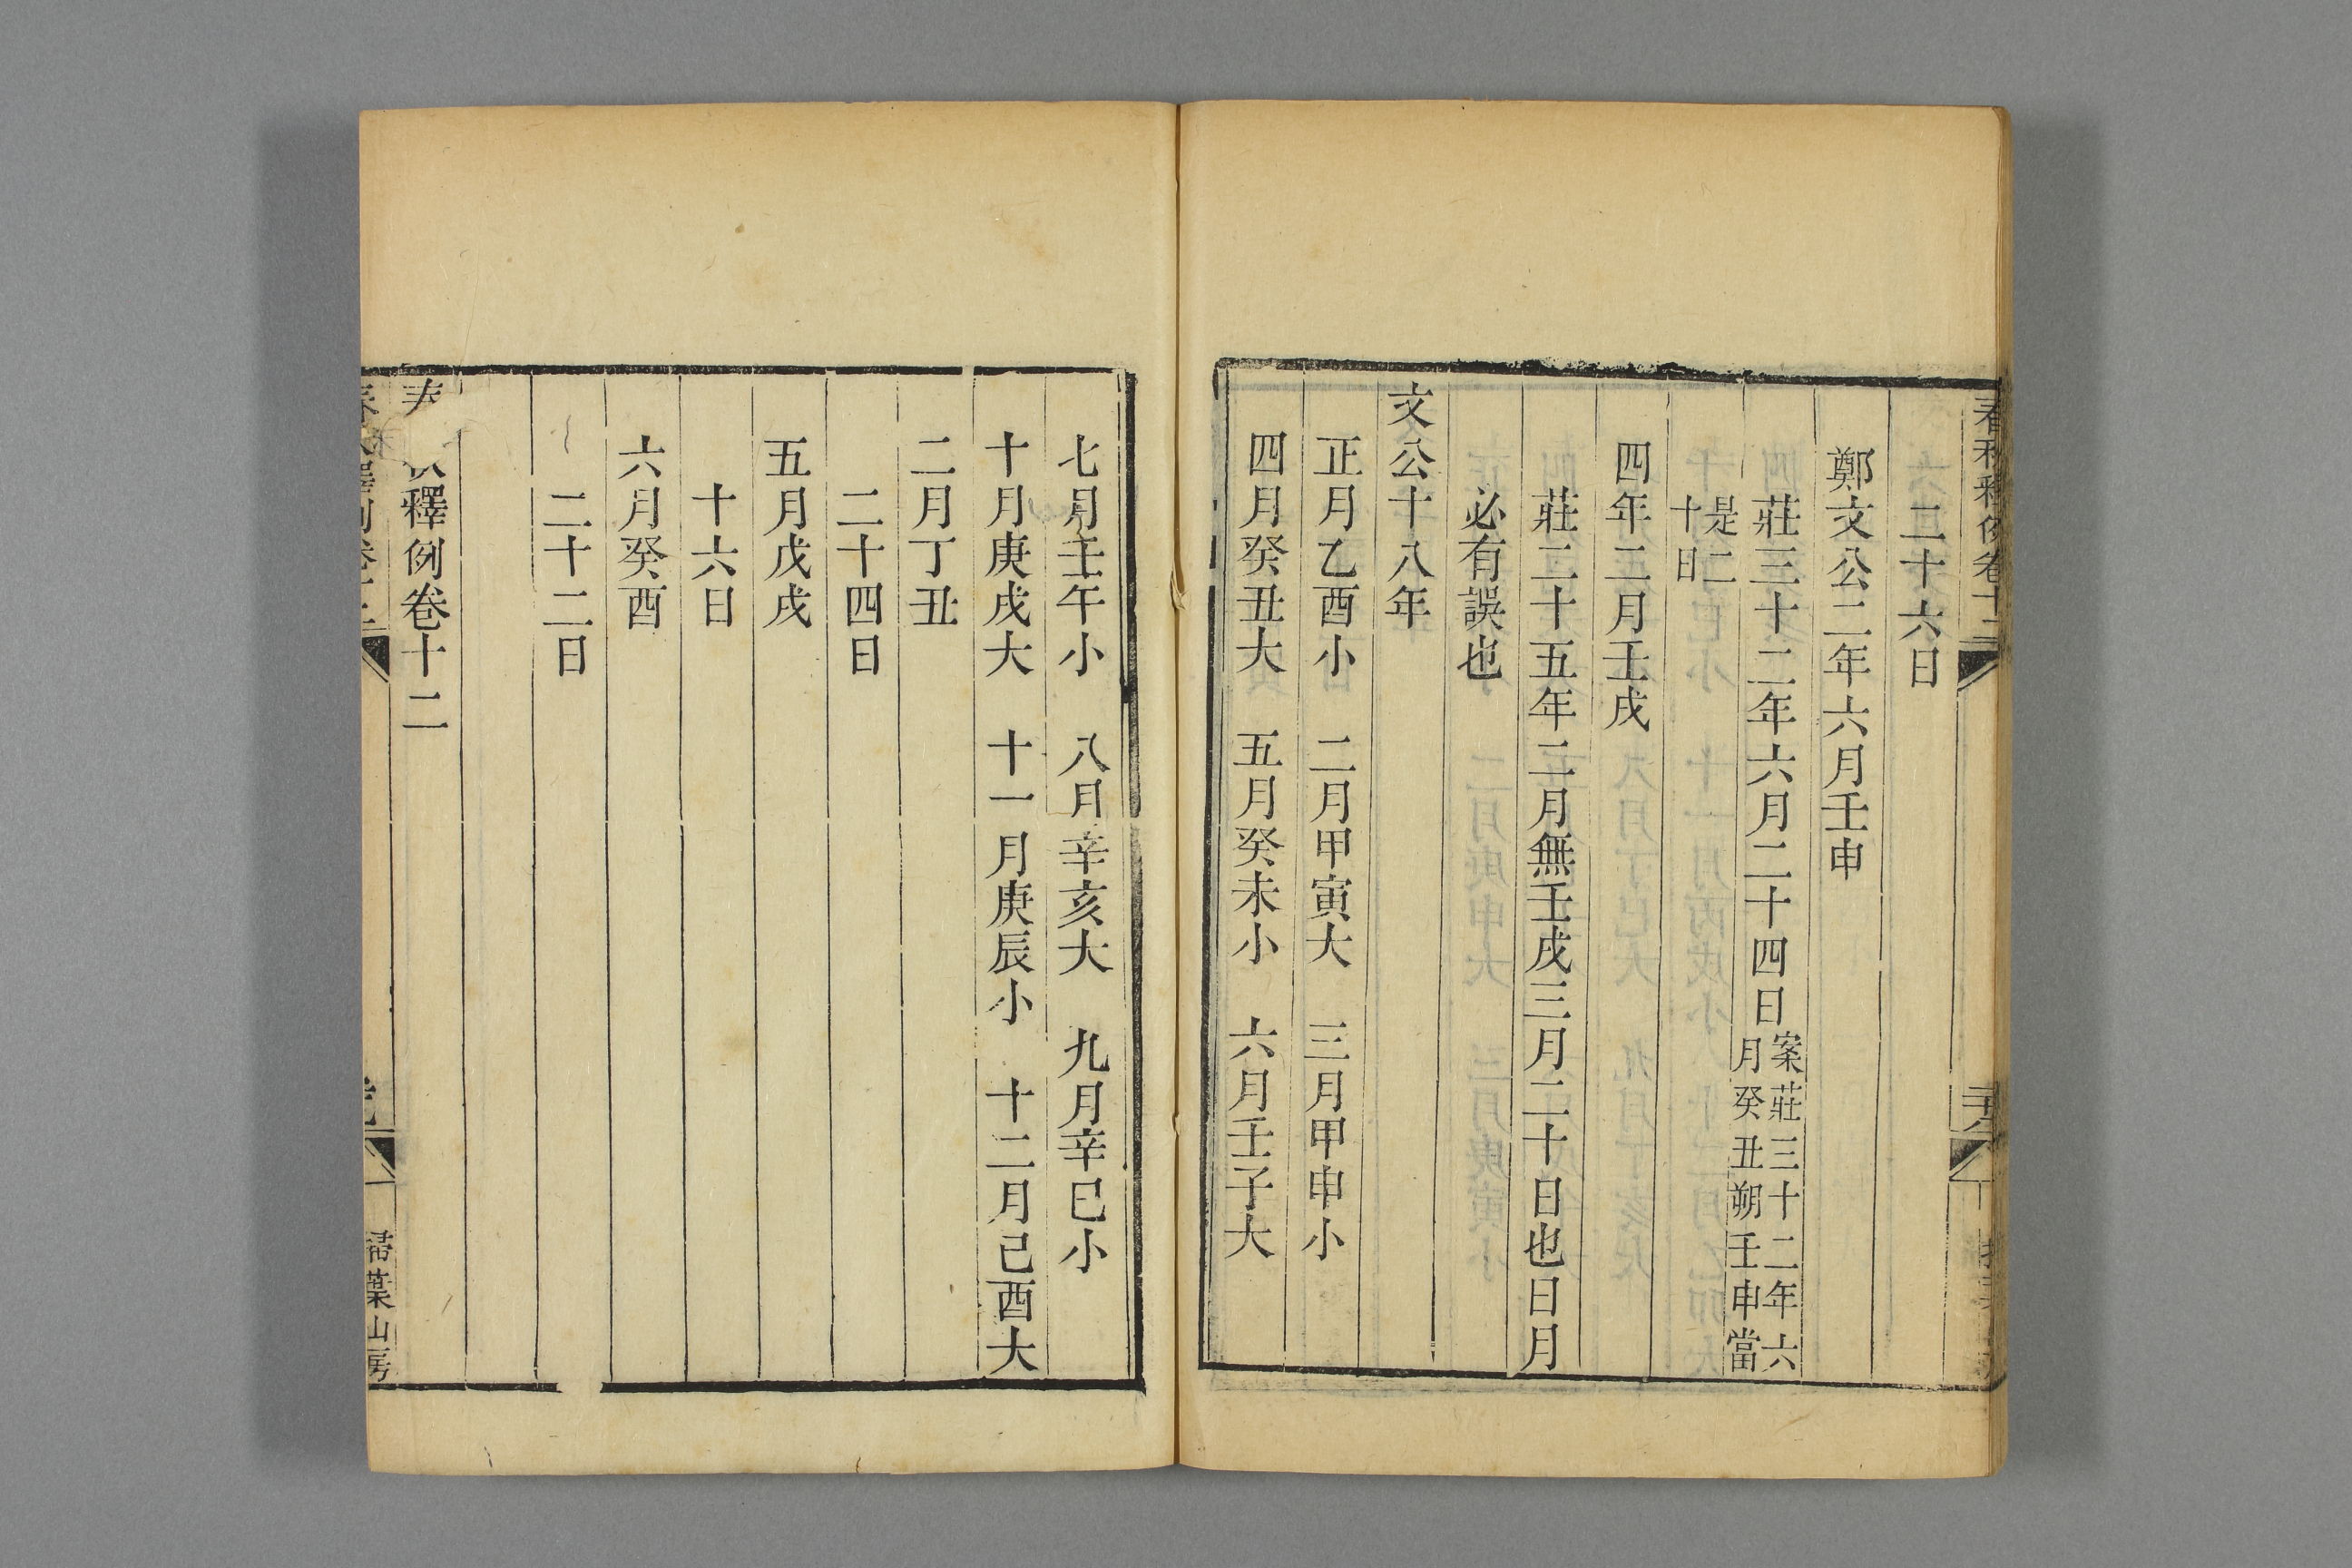 春秋釋例卷十二
二十六日
鄭文公二年六月壬申
莊三十二年六月二十四日案莊三十二年六
月癸丑朔壬申當
是二
十日
四年二月壬戌
莊二十五年二月無壬戌三月二十日也日月
必有誤也
文公十八年
正月乙酉小　二月甲寅大　三月甲申小
四月癸丑大　五月癸未小　六月壬子大
七月壬午小　八月辛亥大　九月辛巳小
十月庚戌大　十一月庚辰小　十二月己酉大
二月丁丑
二十四日
五月戊戌
十六日
六月癸酉
二十二日
釋例卷十二
掃葉山房